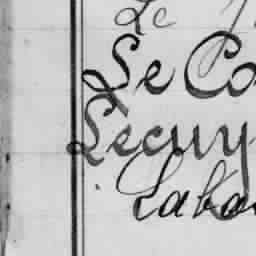 Le
Le Co
Lecuy
Labo